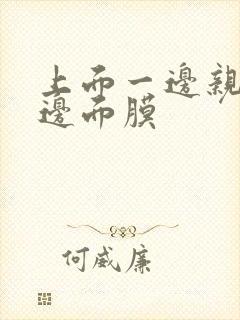 上而一邊親
邊而膜
何威廉